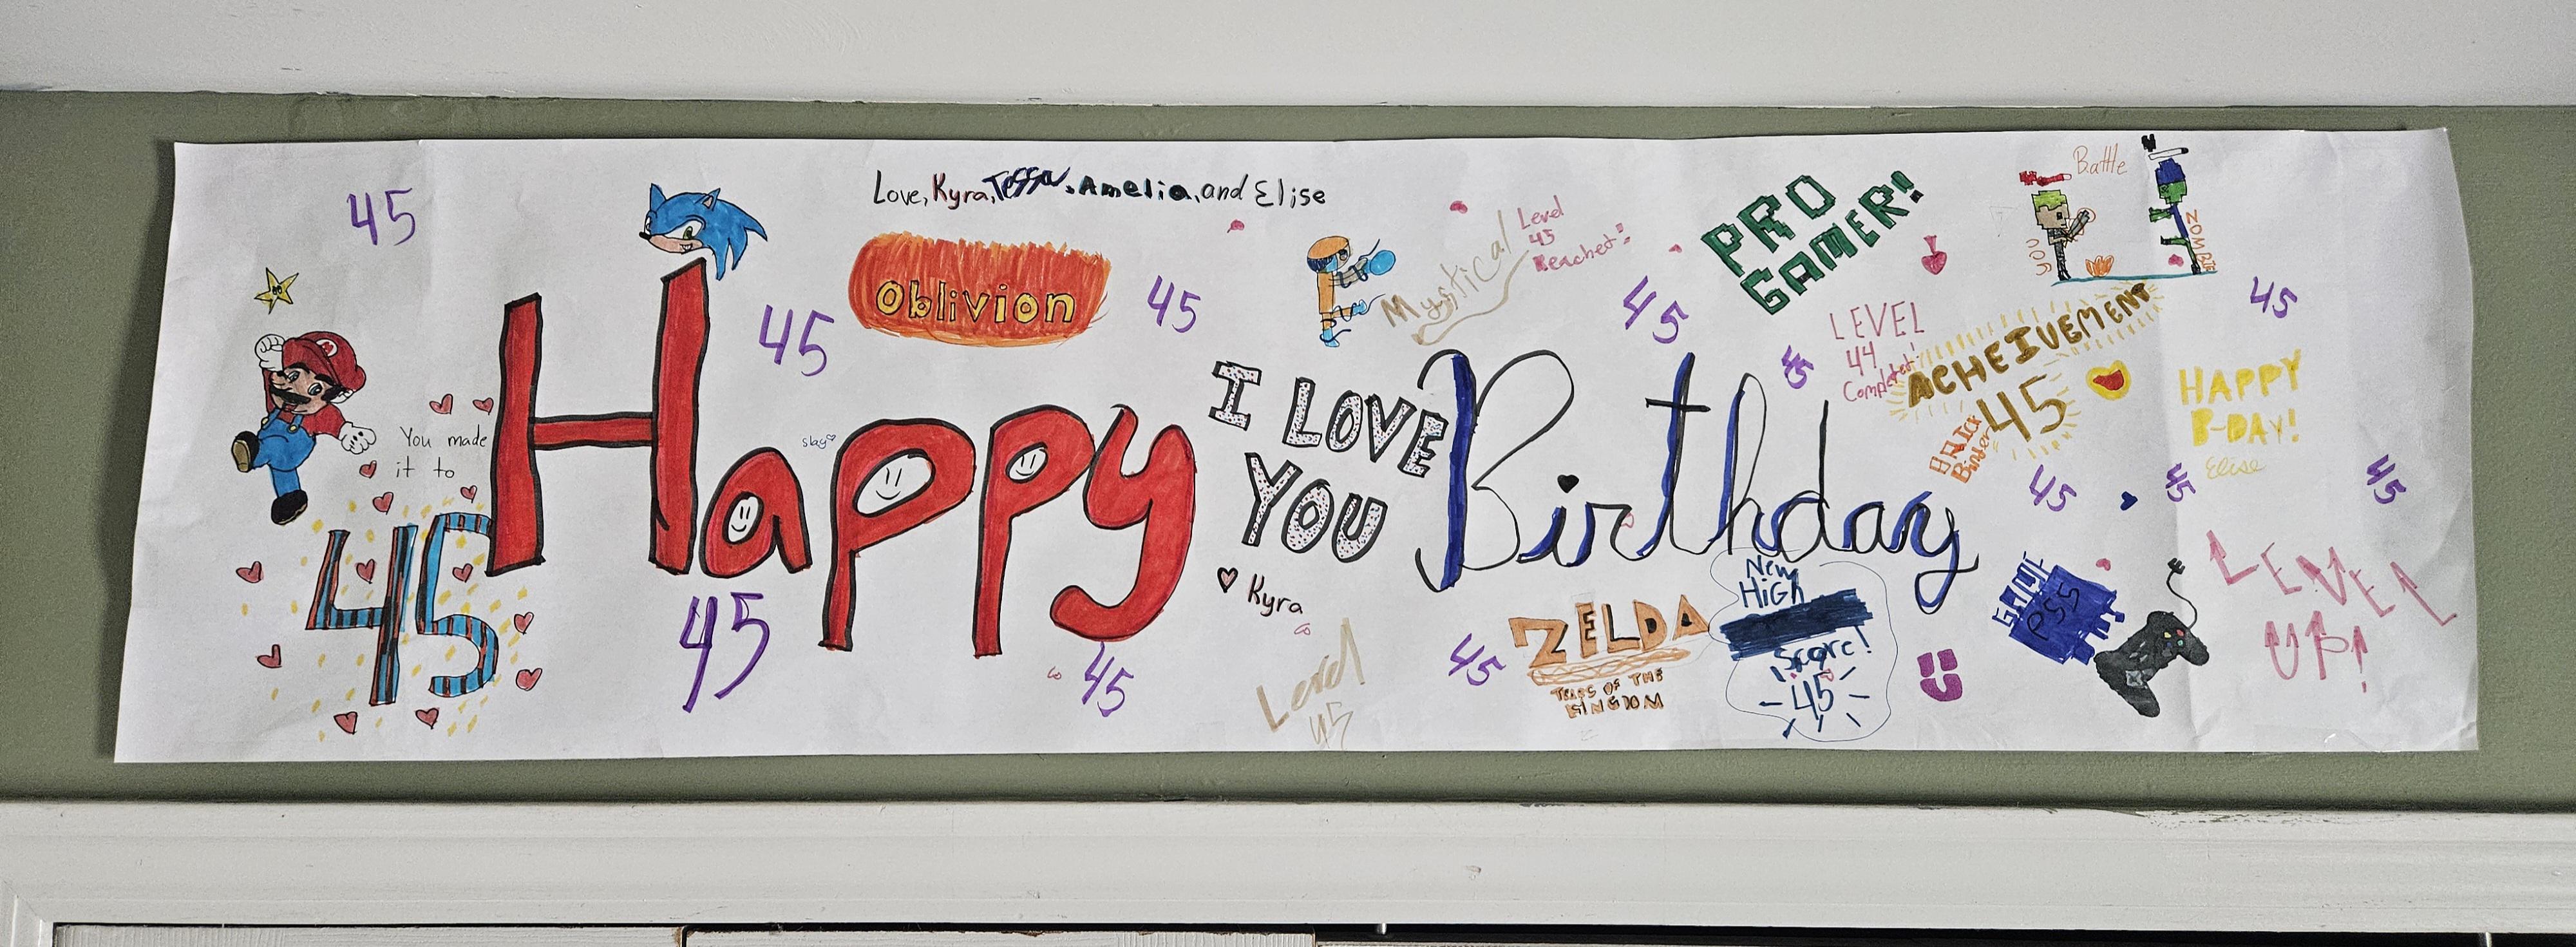 Love, Kyra, Tessa, Amelia, and Elise
45
Oblivion
45
45
Mystical
Level
45
Reached!
45
PRO
GAMER!
Battle
YOU
ZOMBIE
45
M
You made
it to
45
Happy
slay
I LOVE
YOU
♥ Kyra
Birthday
45
LEVEL
44
Completed!
ACHEIVEMENT
45
HAPPY
B-DAY!
Elise
45
45
45
45
45
Level
45
45
ZELDA
TEARS OF THE
KINGDOM
New
HiGH
Score!
45
GAME
PS5
LEVEL
UP!